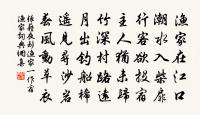 漁家在江口
潮水入柴扉
行客欲投宿
主人猶未歸
竹深村路遠
月出釣船稀
遙見尋沙岸
春風動草衣
張籍夜到漁家一作宿
漁家詞典網集